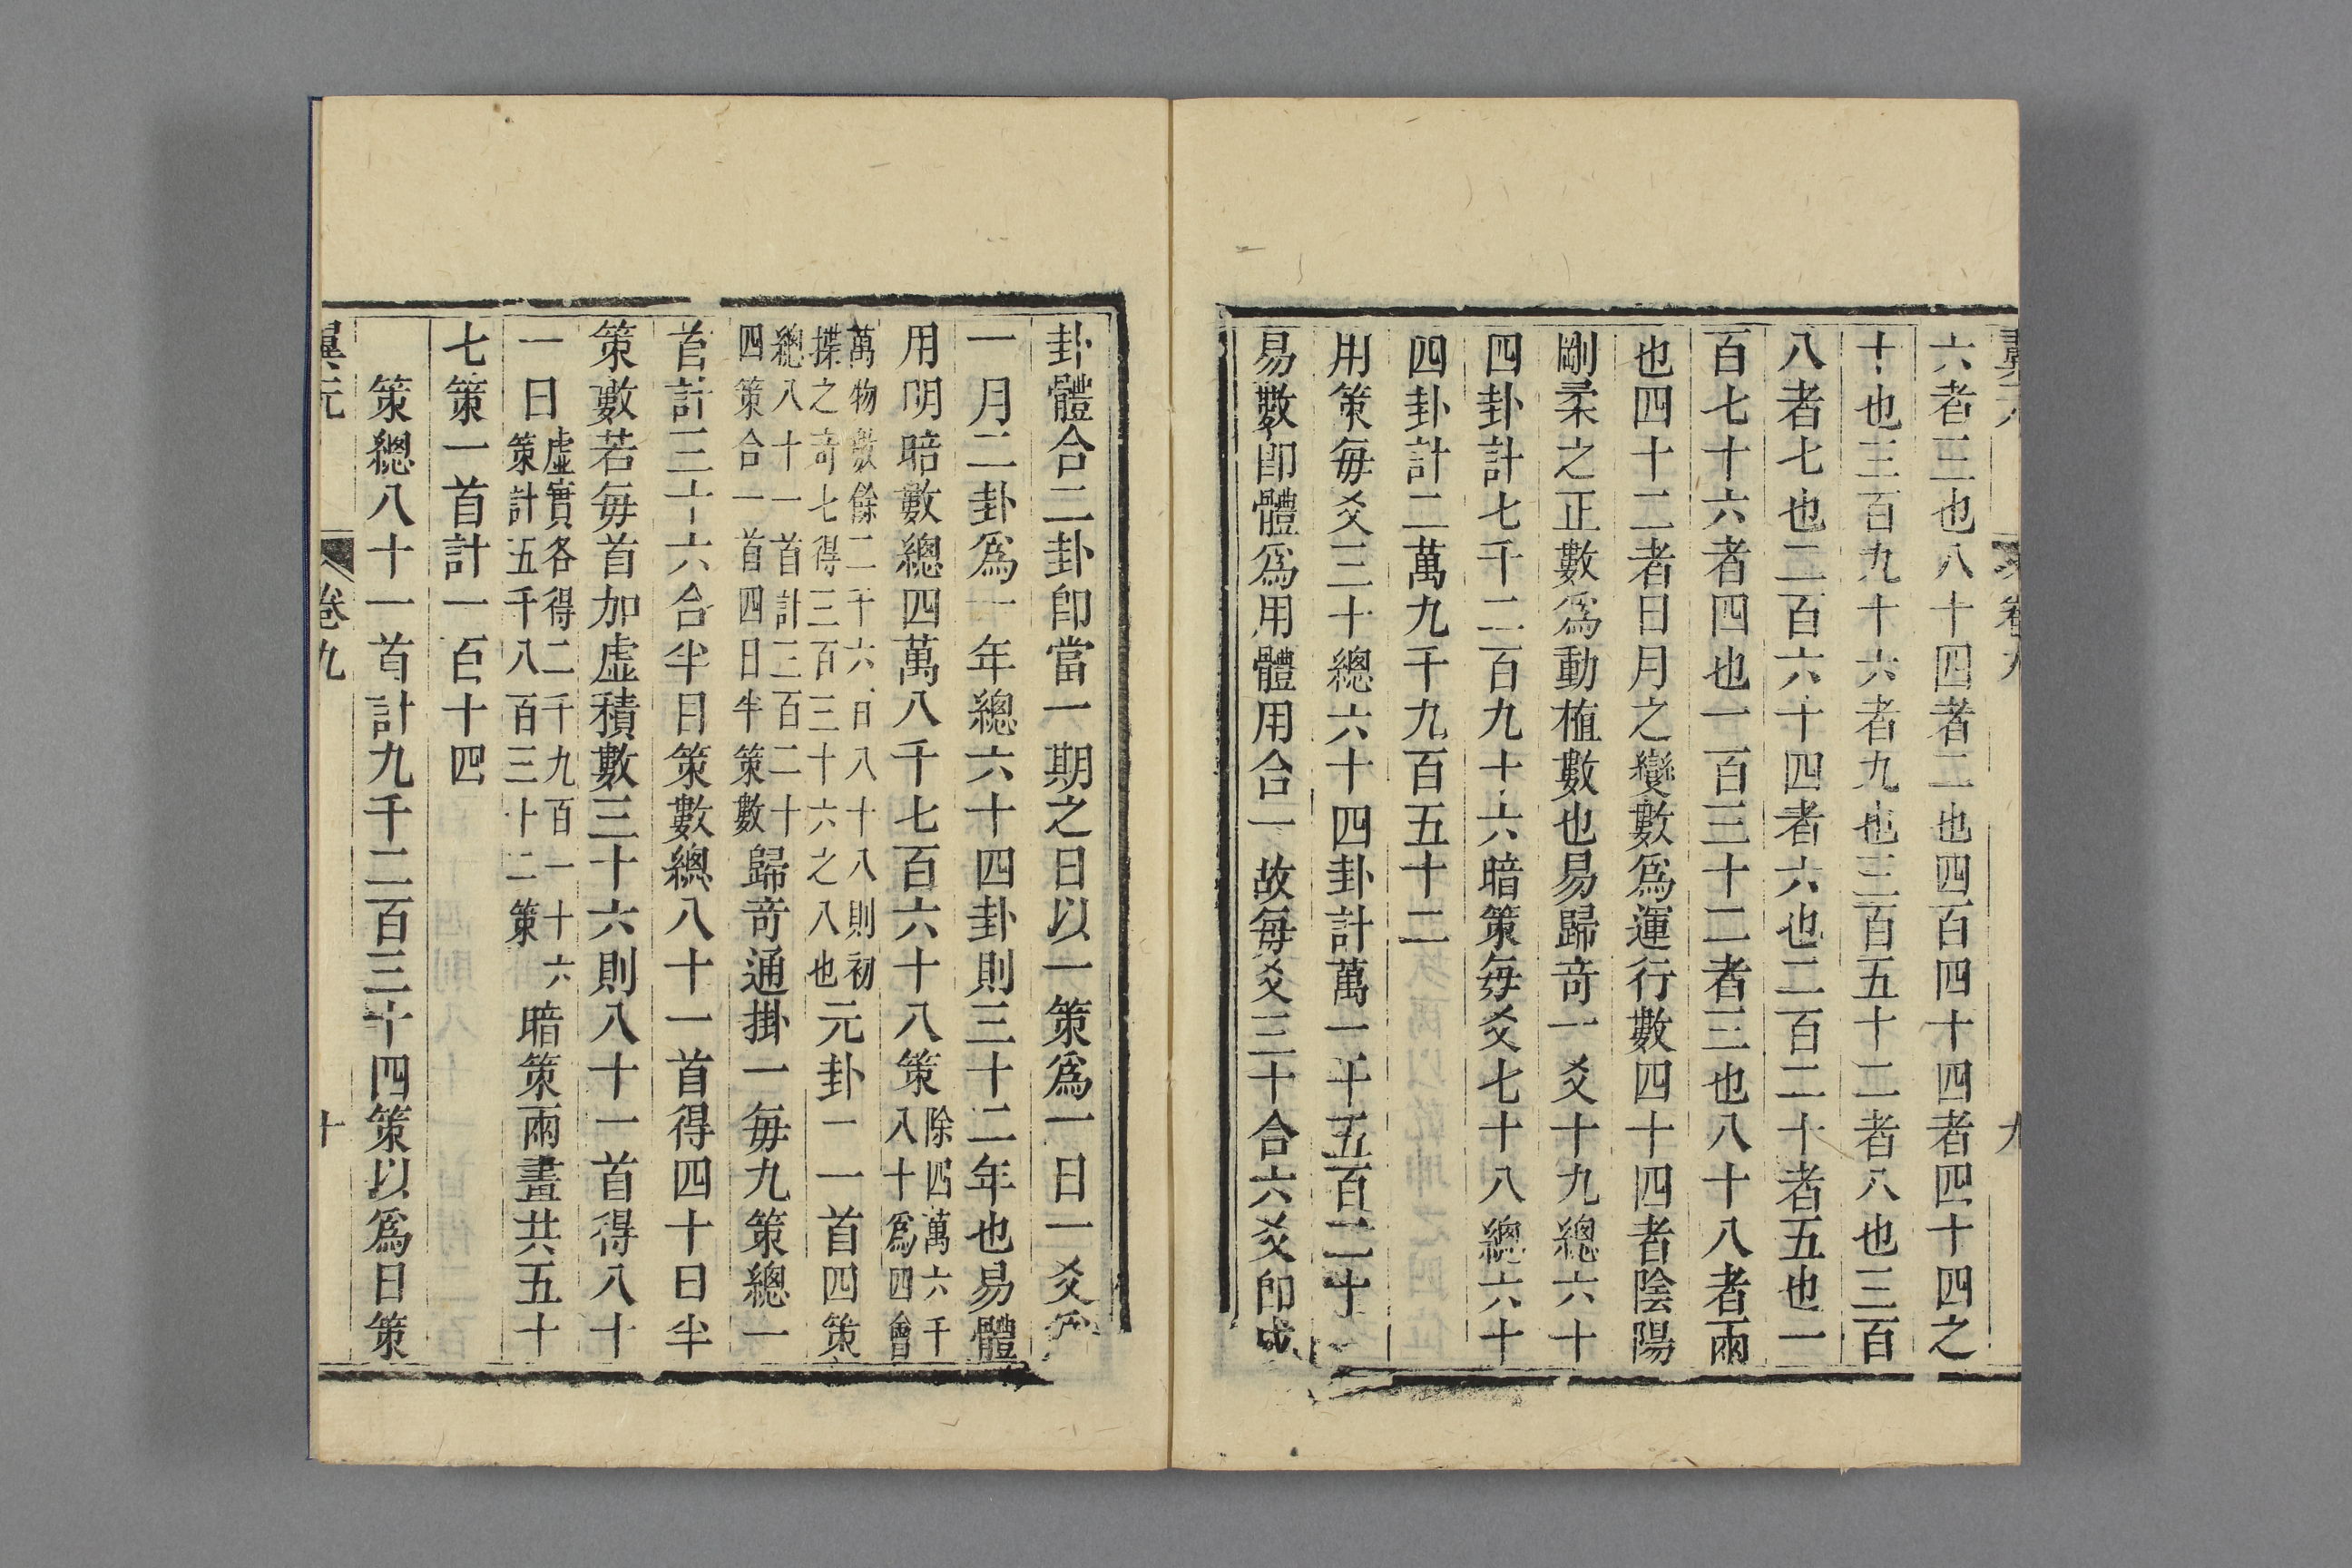 六者三也八十四者二也四百四十四者四十四之
十也三百九十六者九也三百五十二者八也三百
八者七也二百六十四者六也二百二十者五也一
百七十六者四也一百三十二者三也八十八者兩
也四十二者日月之變數爲運行數四十四者陰陽
剛柔之正數爲動植數也易歸竒一爻十九總六十
四卦計七千二百九十六暗策毎爻七十八總六十
四卦計二萬九千九百五十二
用策毎爻三十總六十四卦計萬一千五百二十
易數卽體爲用體用合一故毎爻三十合六爻卽成
卦體合二卦卽當一期之日以一策爲一日一爻爲
一月二卦爲一年總六十四卦則三十二年也易體
用明暗數總四萬八千七百六十八策
除四萬六千
八十爲四會
萬物數餘二千六百八十八則初
揲之竒七得三百三十六之八也
元卦一一首四策
總八十一首計三百二十
四策合一首四日半策數
歸竒通掛一毎九策總一
首計三十六合半日策數總八十一首得四十日半
策數若毎首加虛積數三十六則八十一首得八十
一日
虛實各得二千九百一十六
策計五千八百三十二策
暗策兩畫共五十
七策一首計一百十四
策總八十一首計九千二百三十四策以爲日策
翼元
卷九
十